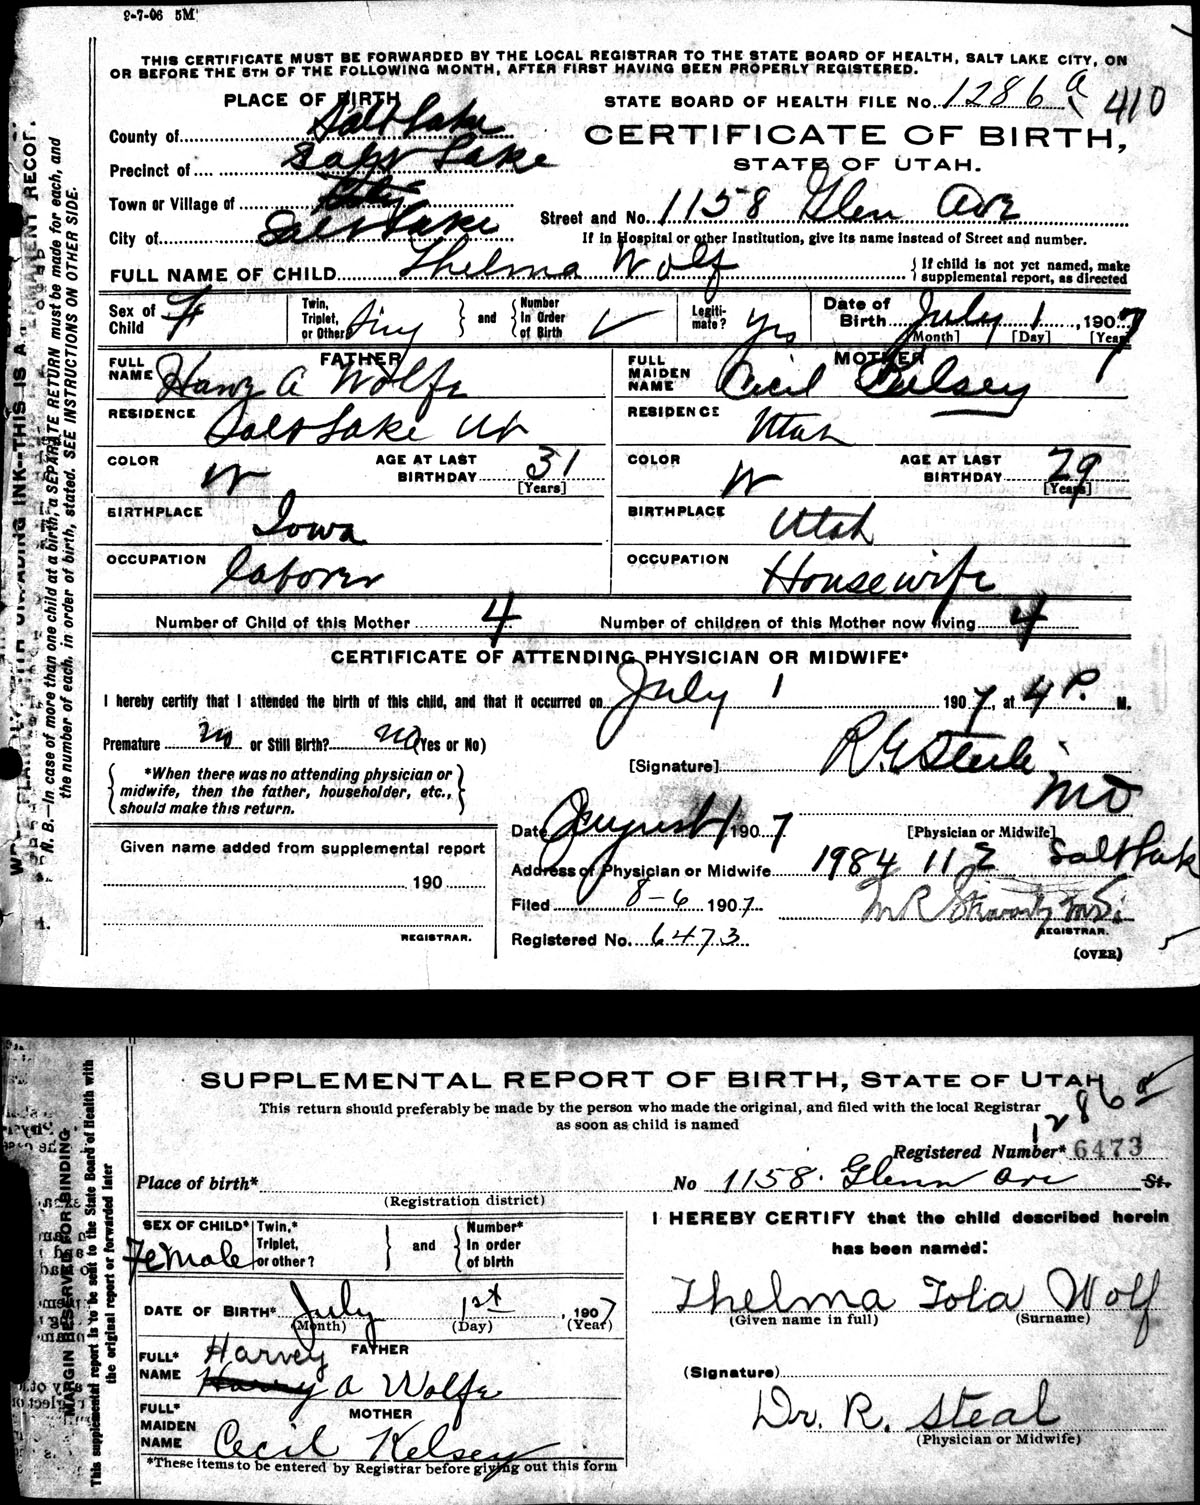 9-7-06 5M
THIS CERTIFICATE MUST BE FORWARDED BY THE LOCAL REGISTRAR TO THE STATE BOARD OF HEALTH, SALT LAKE CITY, ON
OR BEFORE THE 5TH OF THE FOLLOWING MONTH, AFTER FIRST HAVING BEEN PROPERLY REGISTERED.
PLACE OF BIRTH
STATE BOARD OF HEALTH FILE No. 1286 a 410
County of Salt Lake
CERTIFICATE OF BIRTH,
Precinct of Salt Lake
STATE OF UTAH.
Town or Village of City
Street and No. 1158 Glen Ave
City of Salt Lake
If in Hospital or other Institution, give its name instead of Street and number.
FULL NAME OF CHILD Thelma Wolf
{ If child is not yet named, make supplemental report, as directed
Sex of Child F
Twin, Triplet, or Other Sing } and { Number in Order of Birth ✓
Legiti-mate? Yes
Date of Birth July 1, 1907
[Month] [Day] [Year]
FATHER
FULL NAME A Wolfe
MOTHER
FULL MAIDEN NAME Cecil Kelsey
RESIDENCE Salt Lake Ut
RESIDENCE Utah
COLOR W AGE AT LAST BIRTHDAY 31 [Years]
COLOR W AGE AT LAST BIRTHDAY 29 [Years]
BIRTHPLACE Iowa
BIRTHPLACE Utah
OCCUPATION Laborer
OCCUPATION Housewife
Number of Child of this Mother 4 Number of children of this Mother now living 4
CERTIFICATE OF ATTENDING PHYSICIAN OR MIDWIFE*
I hereby certify that I attended the birth of this child, and that it occurred on July 1 1907, at 4 P. M.
Premature no or Still Birth? no (Yes or No)
[Signature] MD
{ *When there was no attending physician or midwife, then the father, householder, etc., should make this return. }
Date August 1 1907
[Physician or Midwife]
Given name added from supplemental report
190
REGISTRAR.
Address of Physician or Midwife 1984 11 E Salt Lake
Filed 8-6 1907
REGISTRAR.
Registered No. 6473
(OVER)
N. B.—In case of more than one child at a birth, a SEPARATE RETURN must be made for each, and
the number of each, in order of birth, stated. SEE INSTRUCTIONS ON OTHER SIDE.
SUPPLEMENTAL REPORT OF BIRTH, STATE OF UTAH
1286 a
This return should preferably be made by the person who made the original, and filed with the local Registrar
as soon as child is named
Registered Number* 6473
Place of birth*
(Registration district)
No 1158 Glenn Ave St.
SEX OF CHILD* Female
Twin,* Triplet, or other? } and { Number* In order of birth
I HEREBY CERTIFY that the child described herein
has been named:
Thelma Iola Wolf
(Given name in full) (Surname)
DATE OF BIRTH* July 1st, 1907
(Month) (Day) (Year)
FATHER
FULL* NAME Harvey A Wolfe
(Signature)
Dr. R. Steal
(Physician or Midwife)
MOTHER
FULL* MAIDEN NAME Cecil Kelsey
*These items to be entered by Registrar before giving out this form
MARGIN RESERVED FOR BINDING
This supplemental report is to be sent to the State Board of Health with
the original report or forwarded later